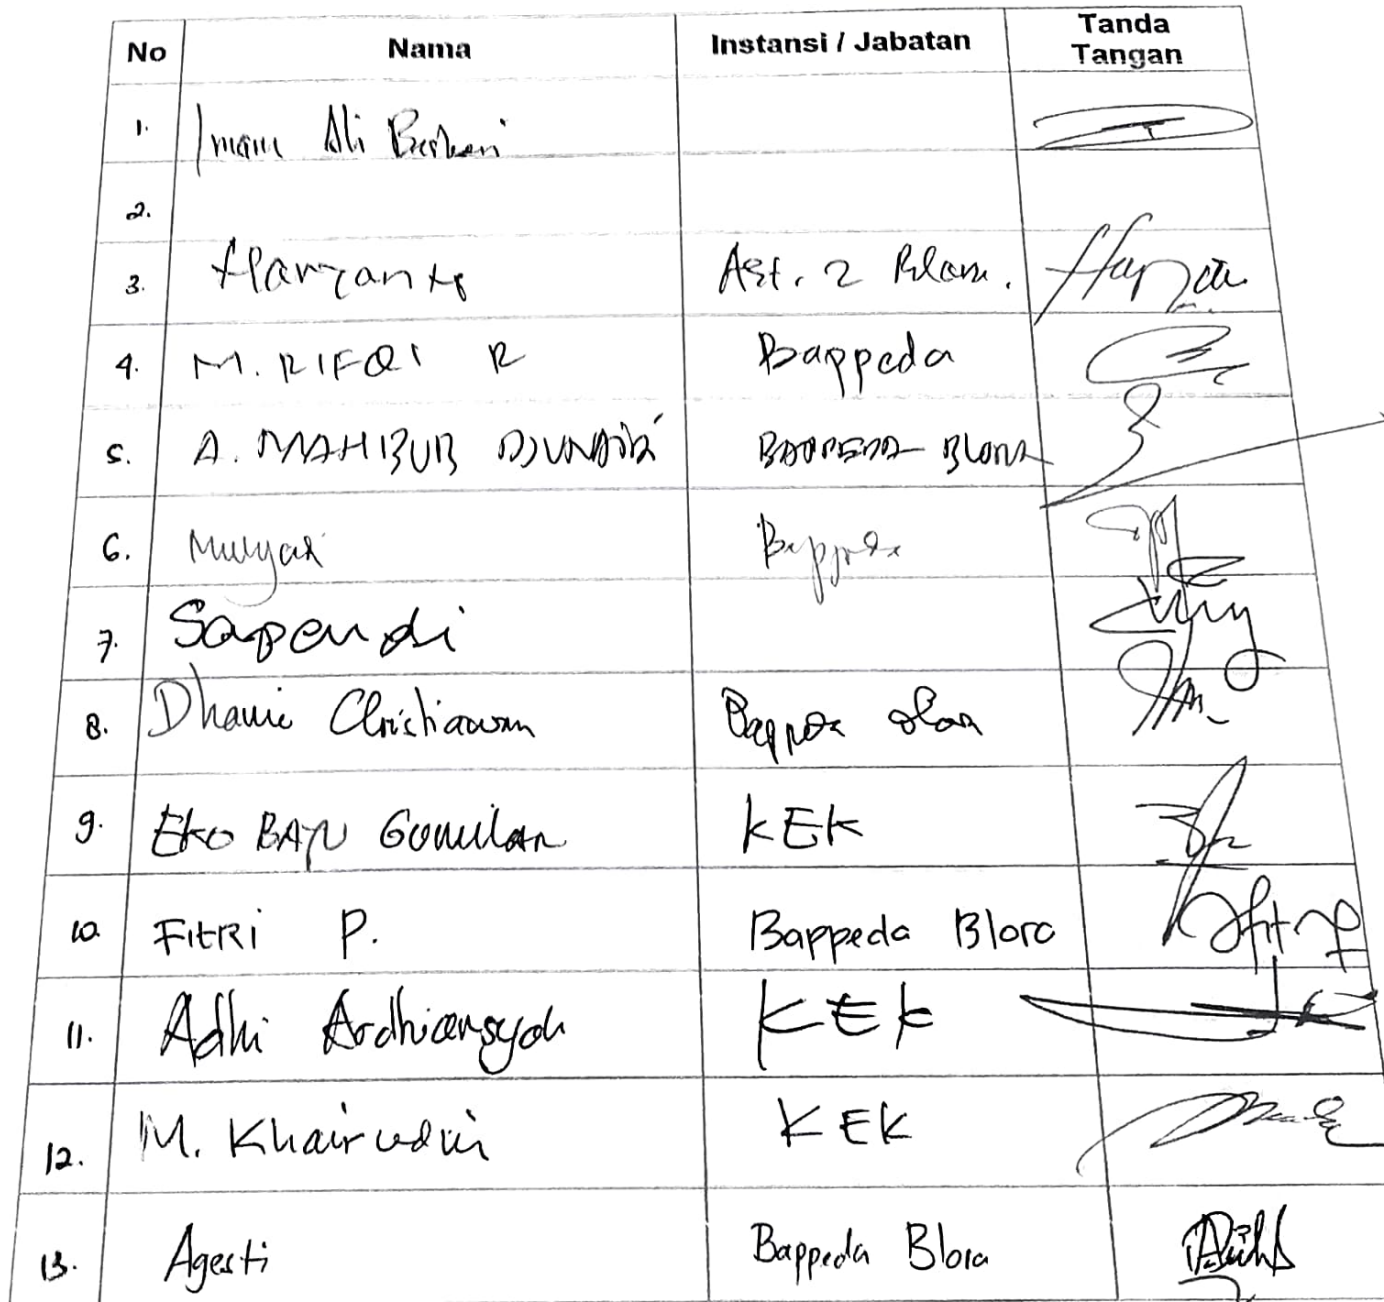 No Nama Instansi / Jabatan Tanda Tangan
1. Imam Ali
2.
3. Haryanto Ast. 2 Blora.
4. M. RIFQI R Bappeda
5. A. MAHBUB DJUNAIDI BAPPEDA BLORA
6. Mulyadi Bappeda
7. Sapendi
8. Dhanie Christiawan Bappeda Blora
9. EKO BAYU Gumilar KEK
10. FITRI P. Bappeda Blora
11. Adhi Ardhiansyah KEK
12. M. Khairudin KEK
13. Agesti Bappeda Blora